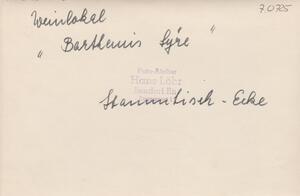 7.0785
Weinlokal
"Barthemis Syre"
Foto-Atelier
Hans Löhr
Stammtisch-Ecke